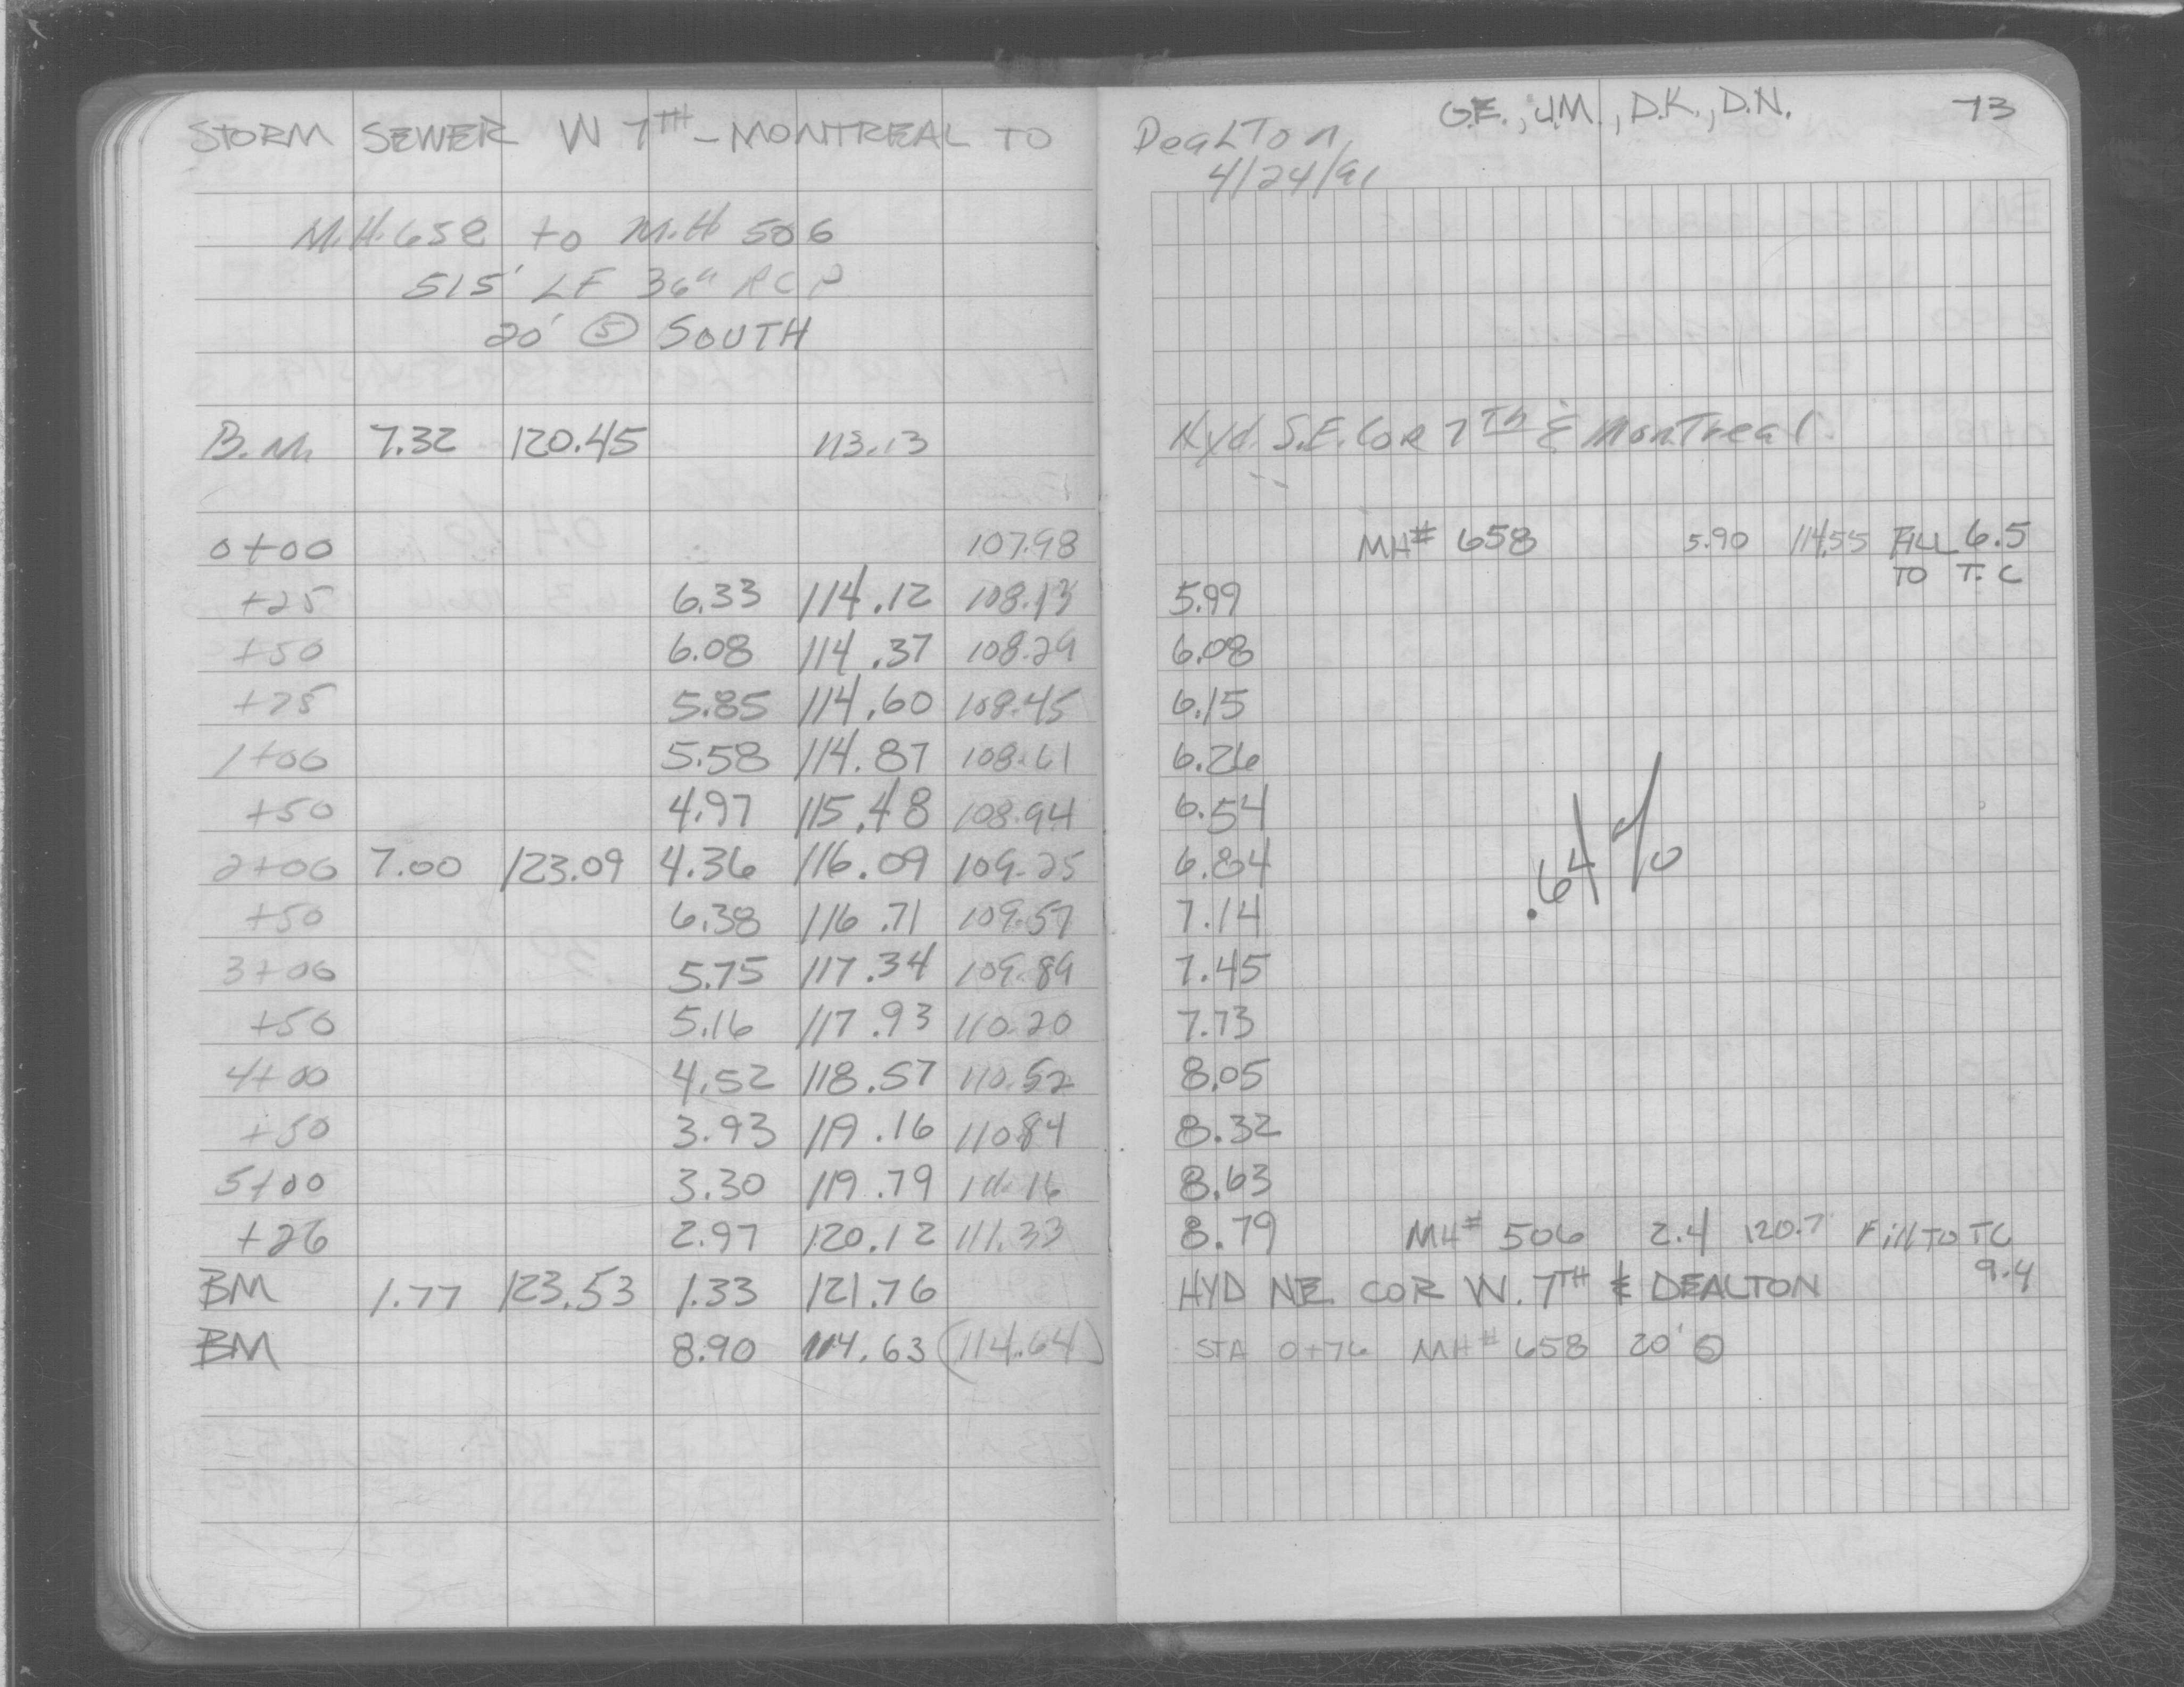 STORM SEWER W 7TH - MONTREAL TO
M.H. 658 to M.H 506
515' LF 36" RCP
20' Ⓢ SOUTH
B.M. 7.32 120.45 113.13
0+00 107.98
+25 6.33 114.12 108.13
+50 6.08 114.37 108.29
+75 5.85 114.60 108.45
1+00 5.58 114.87 108.61
+50 4.97 115.48 108.94
2+00 7.00 123.09 4.36 116.09 109.25
+50 6.38 116.71 109.57
3+00 5.75 117.34 109.89
+50 5.16 117.93 110.20
4+00 4.52 118.57 110.52
+50 3.93 119.16 110.84
5+00 3.30 119.79 111.16
+26 2.97 120.12 111.33
BM 1.77 123.53 1.33 121.76
BM 8.90 114.63 (114.64)
G.E., J.M., D.K., D.N. 73
DeaLTon
4/24/91
Hyd. S.E. Cor 7Th & MonTreal
MH# 658 5.90 114.55 FILL 6.5
TO T.C
5.99
6.08
6.15
6.26
6.54
6.84
.64%
7.14
7.45
7.73
8.05
8.32
8.63
8.79 MH# 506 2.4 120.7 Fill TO TC
9.4
HYD NE COR W. 7TH & DEALTON
STA 0+76 MH# 658 20' Ⓢ